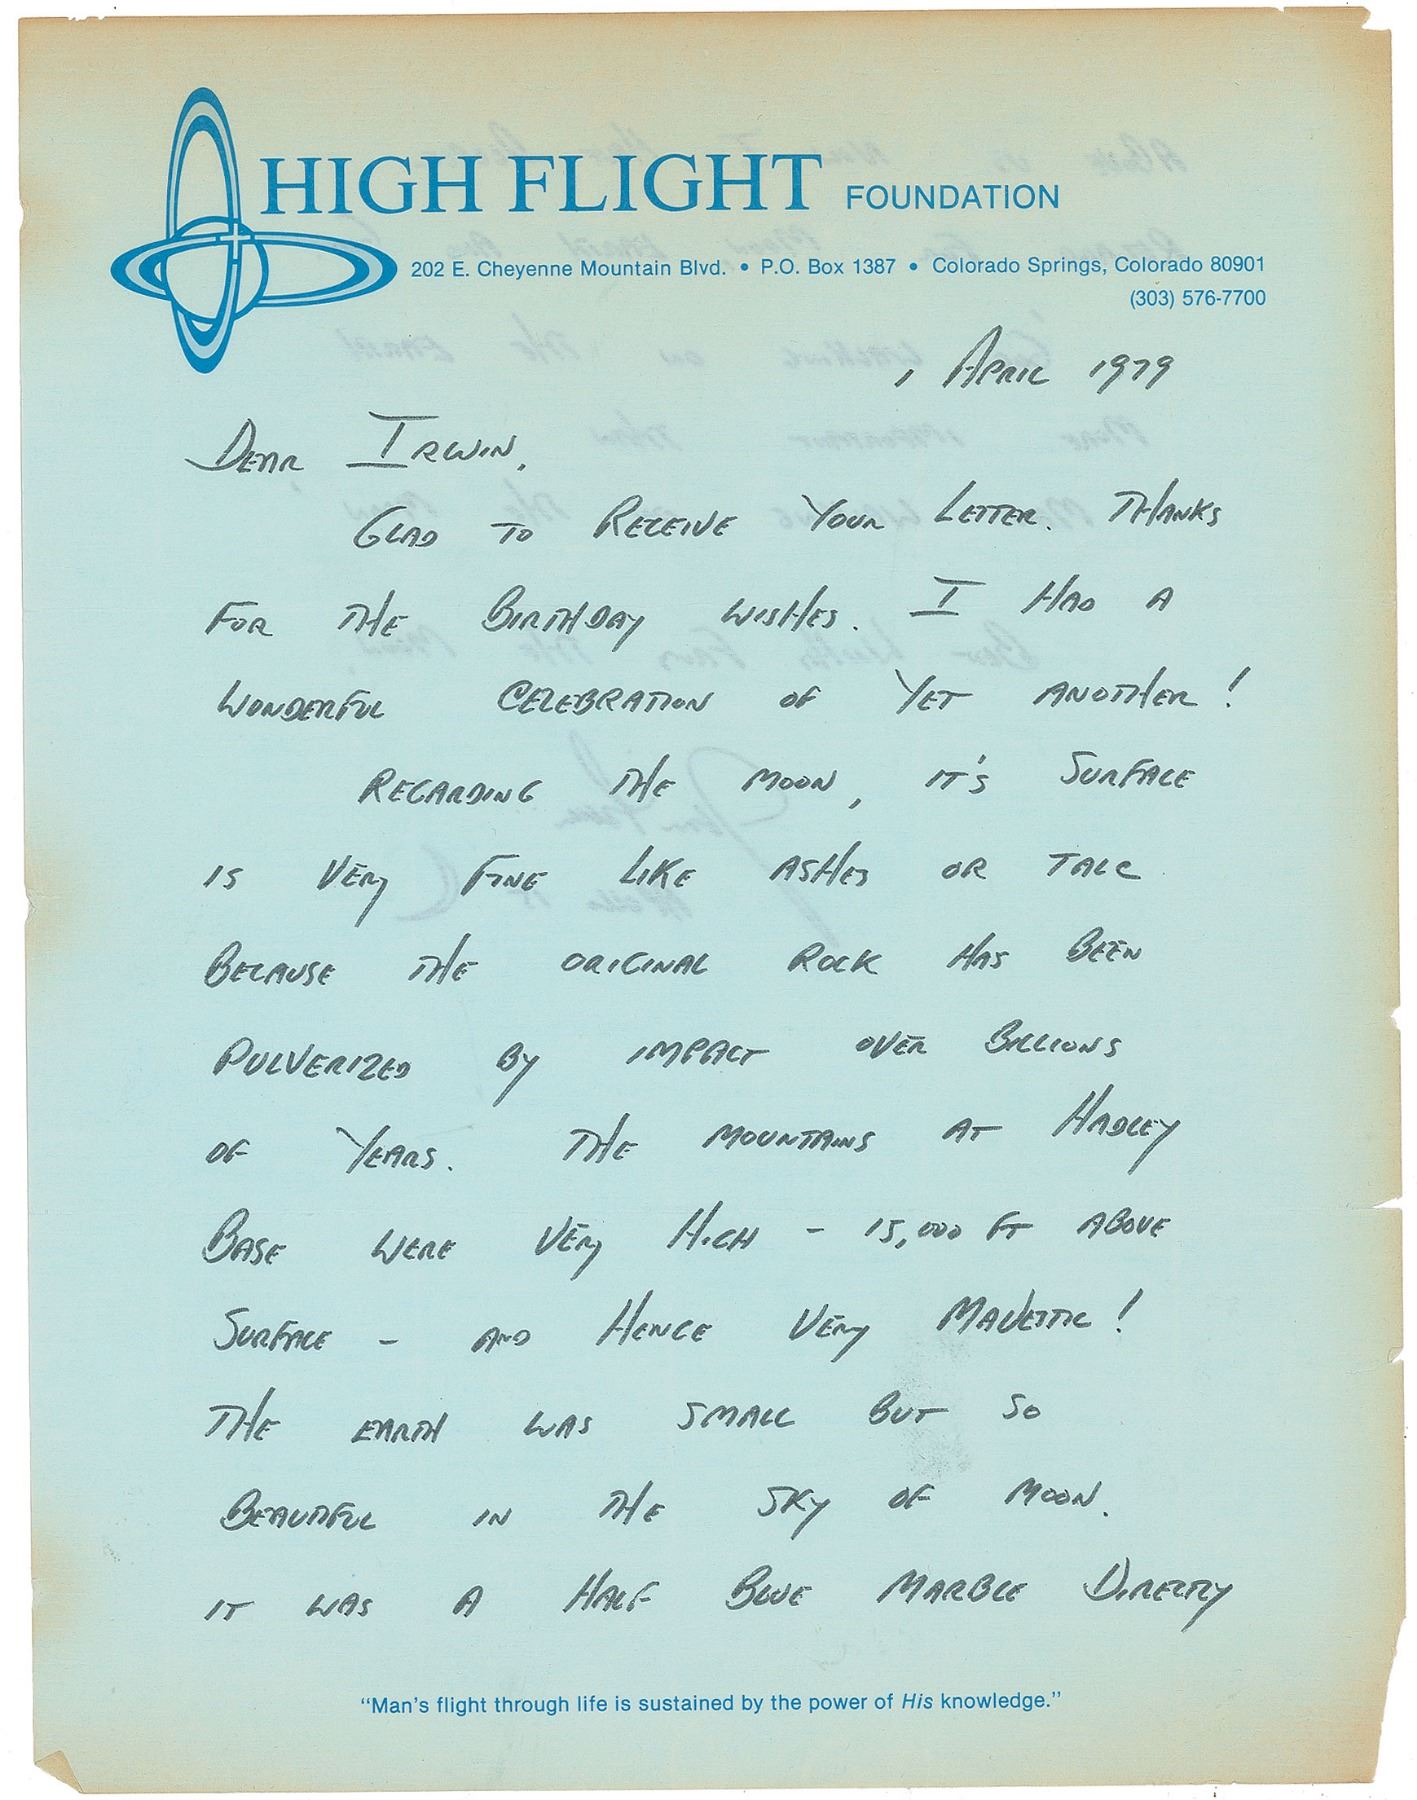 HIGH FLIGHT FOUNDATION
202 E. Cheyenne Mountain Blvd. • P.O. Box 1387 • Colorado Springs, Colorado 80901
(303) 576-7700
1 APRIL 1979
DEAR IRWIN,
GLAD TO RECEIVE YOUR LETTER. THANKS
FOR THE BIRTHDAY WISHES. I HAD A
WONDERFUL CELEBRATION OF YET ANOTHER!
REGARDING THE MOON, IT'S SURFACE
IS VERY FINE LIKE ASHES OR TALC
BECAUSE THE ORIGINAL ROCK HAS BEEN
PULVERIZED BY IMPACT OVER BILLIONS
OF YEARS. THE MOUNTAINS AT HADLEY
BASE WERE VERY HIGH - 15,000 FT ABOVE
SURFACE - AND HENCE VERY MAJESTIC!
THE EARTH WAS SMALL BUT SO
BEAUTIFUL IN THE SKY OF MOON.
IT WAS A HALF BLUE MARBLE DIRECTLY
"Man's flight through life is sustained by the power of His knowledge."